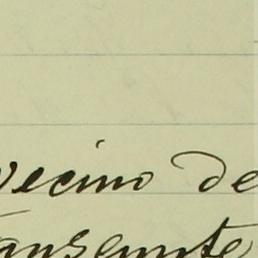 vecino de
transeunte